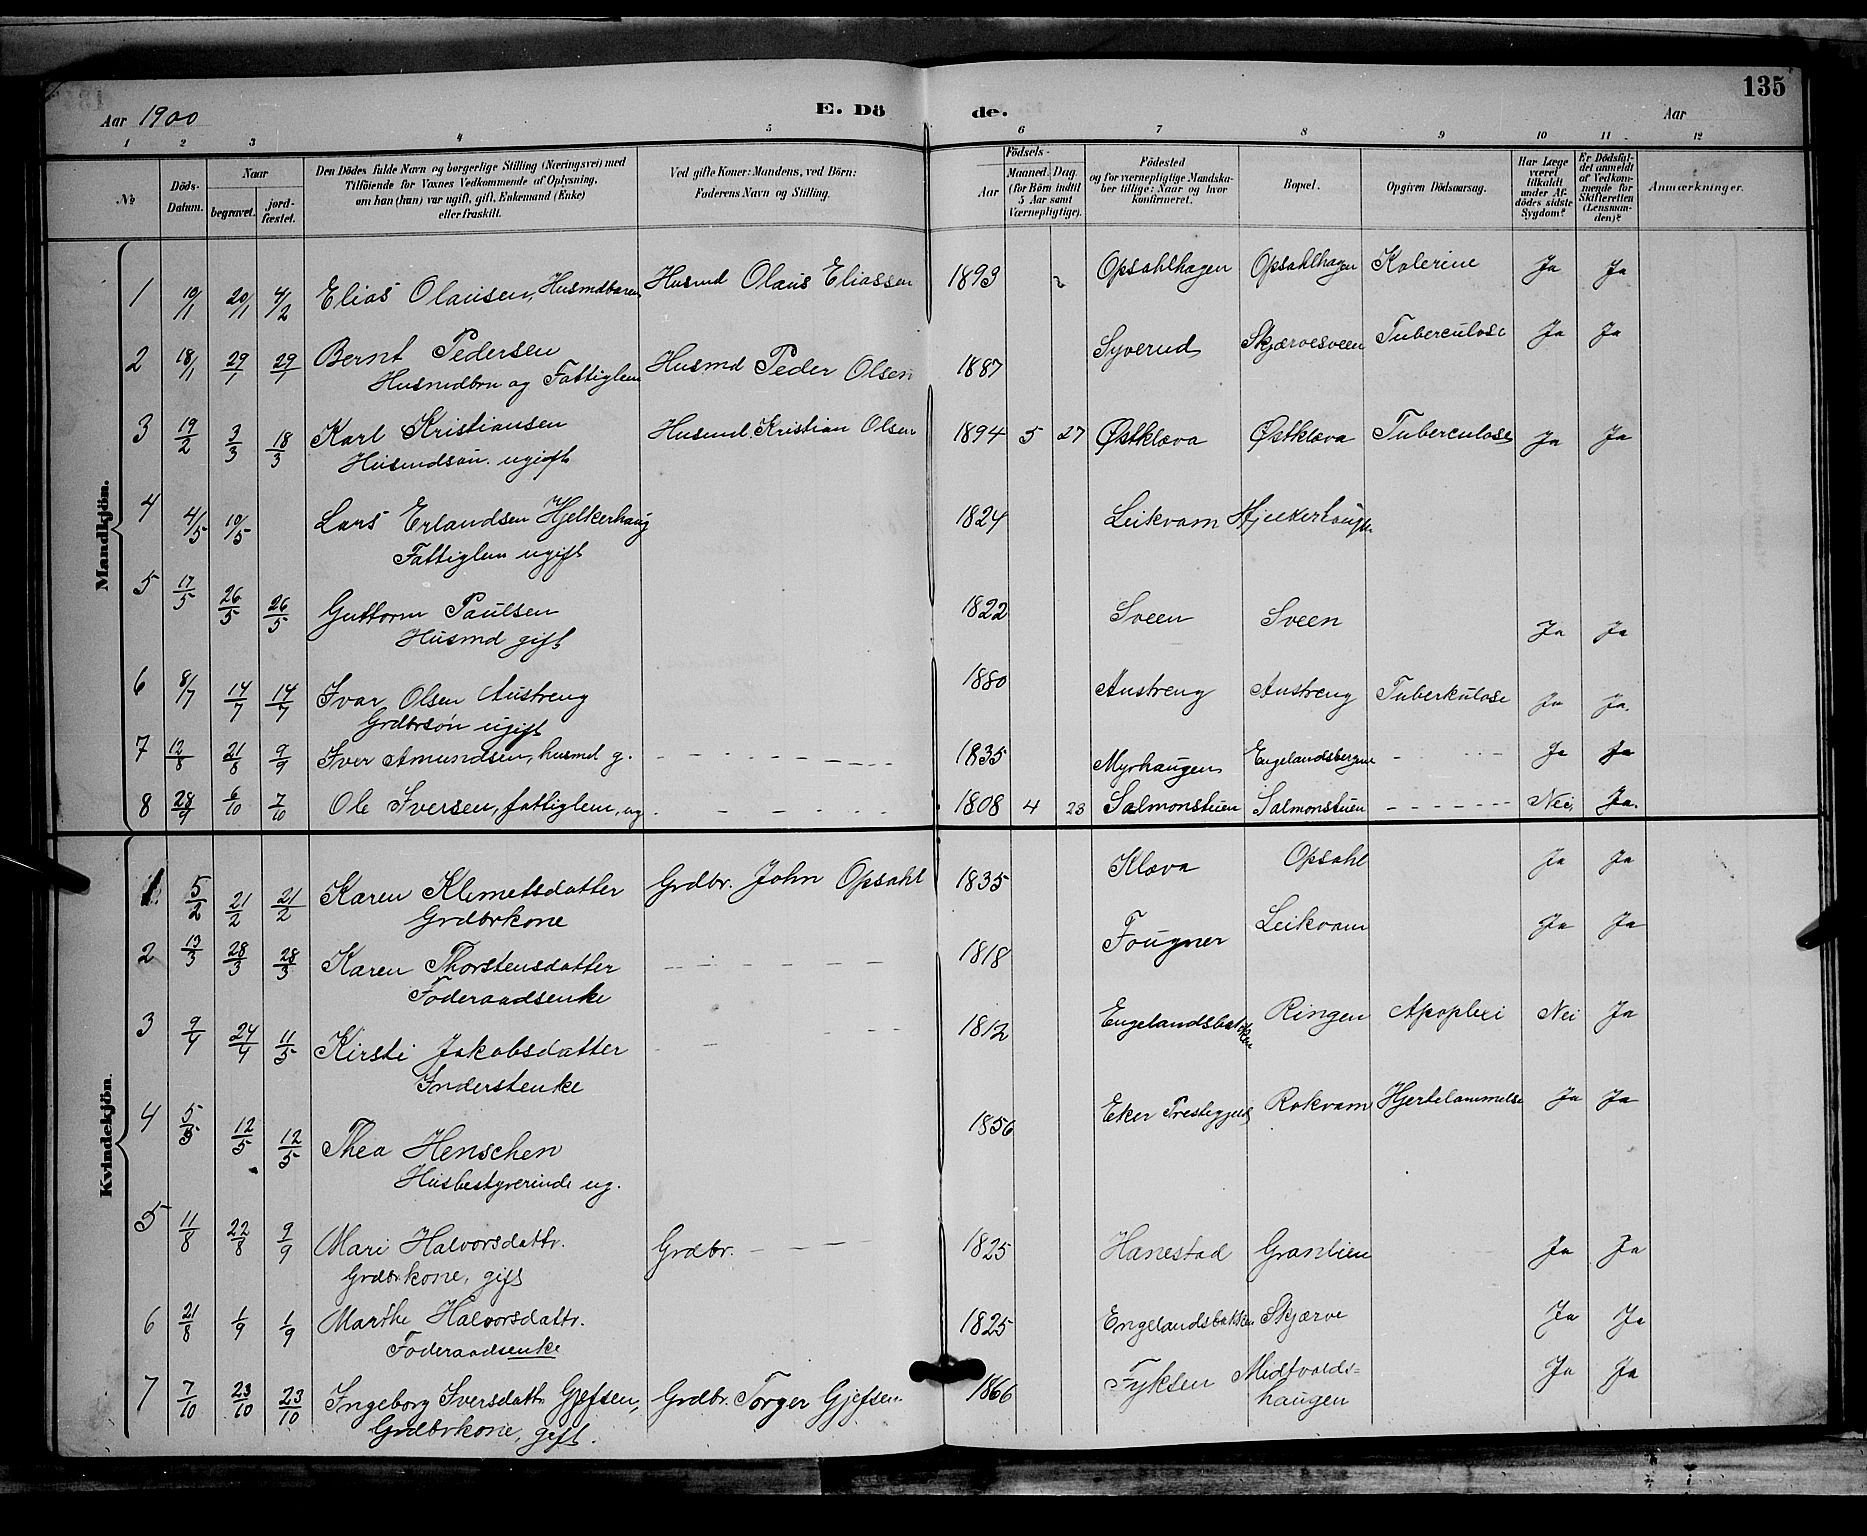 135
Aar 1900 E. Dö de. Aar
1 2 3 4 5 6 7 8 9 10 11 12
№ Döds-Datum. Naar begravet. jord-fæstet. Den Dödes fulde Navn og borgerlige Stilling (Næringsvei) med Tilföiende for Voxnes Vedkommende af Oplysning, om han (hun) var ugift, gift, Enkemand (Enke) eller fraskilt. Ved gifte Koner: Mandens, ved Börn: Faderens Navn og Stilling. Födsels- Aar Maaned. Dag. (for Börn indtil 5 Aar samt Værnepligtige). Födested og for værnepligtige Mandska-ber tillige: Naar og hvor konfirmeret. Bopæl. Opgiven Dödsaarsag. Har Læge været tilkaldt under Af-dödes sidste Sygdom? Er Dödsfal-det anmeldt af Vedkom-mende for Skifteretten (Lensman-den)? Anmærkninger.
Mandkjön.
1 10/1 20/1 4/2 Elias Olausen, Husmdbarn Husmd Olaus Eliassen 1893 2 Opsahlhagen Opsahlhagen Kolerine Ja Ja
2 18/1 29/1 29/1 Bernt Pedersen Husmd Peder Olsen 1887 Syverud Skjærvesveen Tuberculose Ja Ja
Husmdbrn og Fattiglem
3 19/2 3/3 18/3 Karl Kristiansen Husmd Kristian Olsen 1894 5 27 Østklæva Østklæva Tuberculose Ja Ja
Husmdsøn. ugift
4 4/5 10/5 Lars Erlandsen Hjelkerhaug 1824 Leikvam
Fattiglem ugift
5 17/5 26/5 26/5 Guttorm Paulsen 1822 Sveen Sveen Ja Ja
Husmd gift
6 8/7 14/7 14/7 Ivar Olsen Austreng 1880 Austreng Austreng Tuberkulose Ja Ja.
Grdbrsön ugift
7 12/8 21/8 9/9 Iver Amundsen, husmd g. - - - 1835 Myrhaugen Engelandsbergene - - - Ja Ja
8 28/9 6/10 7/10 Ole Iversen, fattiglem, ug - - - 1808 4 23 Salmonstuen Salmonstuen - - - Nei, Ja.
Kvindekjön.
1 5/2 21/2 21/2 Karen Klemetsdatter Grdbr. John Opsahl 1835 Klæva Opsahl Ja Ja
Grdbrkone
2 13/3 28/3 28/3 Karen Thorstensdatter - - - 1818 Fougner Leikvam Ja Ja
Föderaadsenke
3 9/4 24/4 11/5 Kirsti Jakobsdatter - - - 1812 Engelandsbakken Ringen Apoplexi Nei Ja
Inderstenke
4 5/5 12/5 12/5 Thea Henschen 1856 Eker Prestegjeld Rokvam Hjertelammelse Ja Ja
Husbestyrerinde ug.
5 11/8 22/8 9/9 Mari Halvorsdattr. Grdbr. - - - 1825 Hanestad Granlien Ja Ja
Grdbrkone, gift
6 21/8 1/9 1/9 Marthe Halvorsdattr. 1825 Engelandsbakken Skjærve Ja Ja
Föderaadsenke
7 7/10 23/10 23/10 Ingeborg Iversdattr Gjefsen, Grdbr. Torger Gjefsen. 1866 Fyksen Midtvolds-haugen Ja Ja
Grdbrkone, gift.